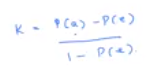 K = P(a) - P(e)
1 - P(e).